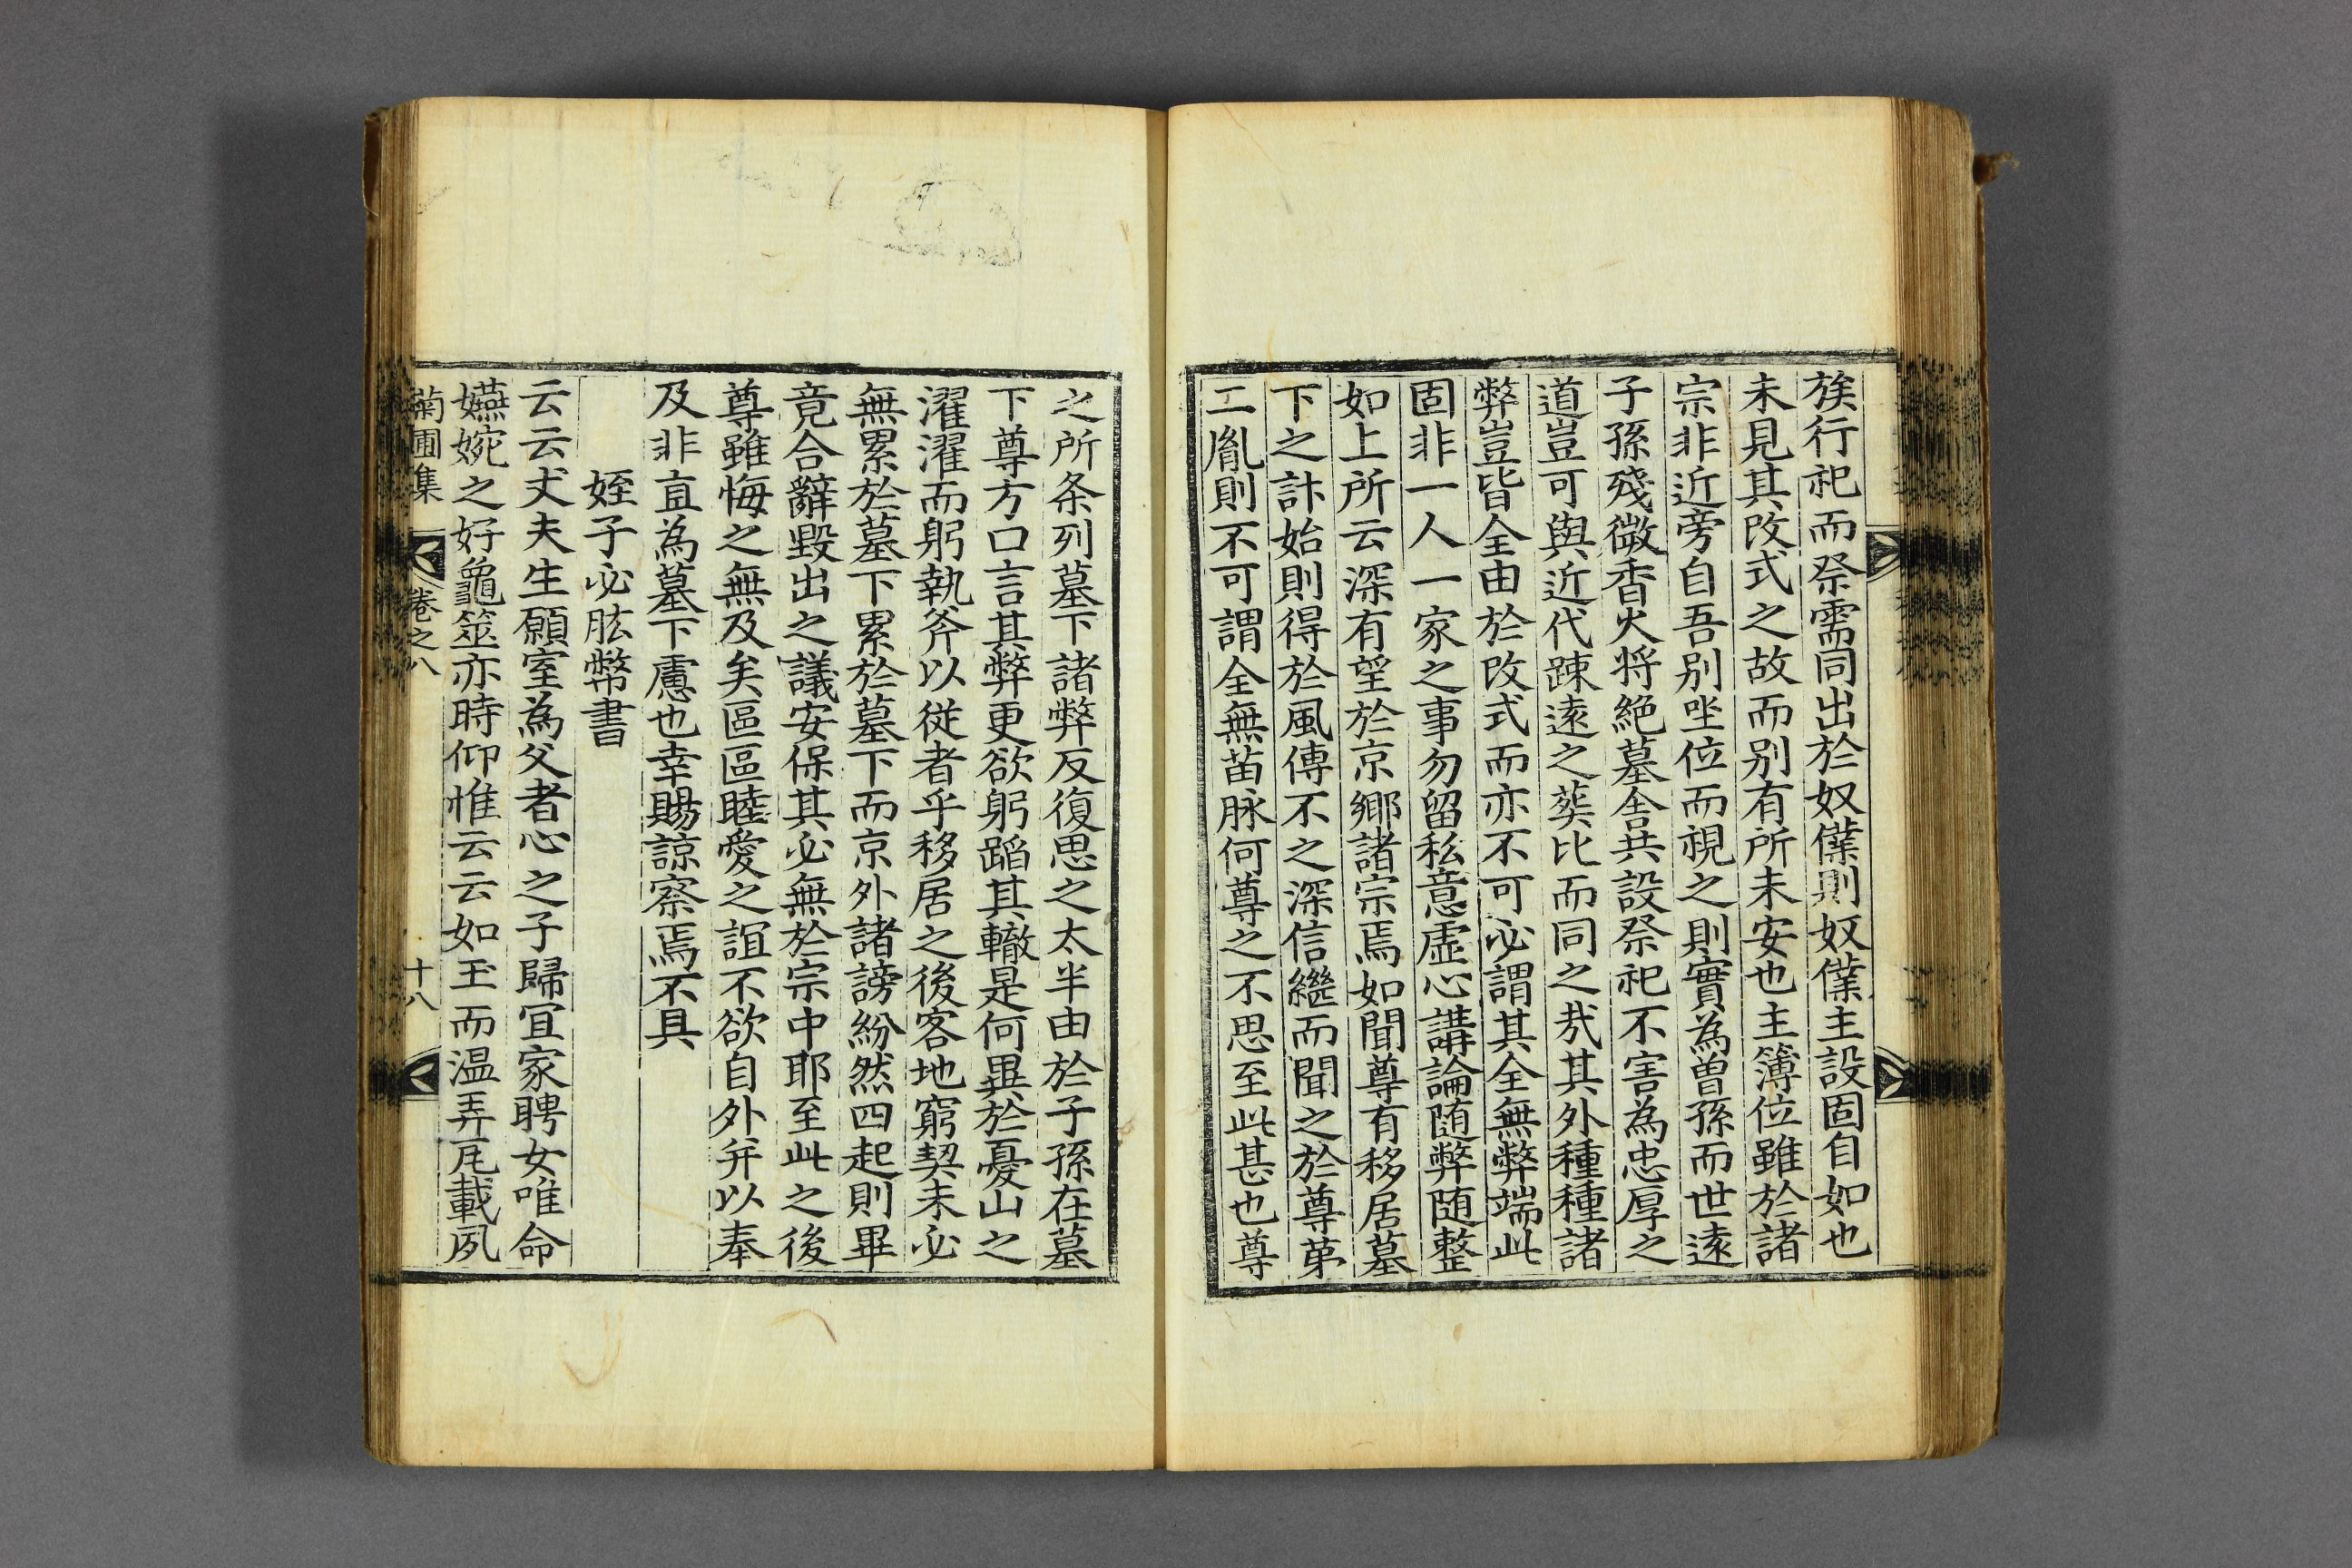 族行祀而祭需同出於奴㒒則奴㒒主設固自如也
未見其改式之故而别有所未安也主簿位雖於諸
宗非近旁自吾别坐位而視之則實為曽孫而世逺
子孫殘微香火将絶墓舍共設祭祀不害為忠厚之
道豈可與近代踈逺之葬比而同之㢤其外種種諸
弊豈皆全由於改式而亦不可必謂其全無弊端此
固非一人一家之事勿留私意虛心講論随弊随整
如上所云深有望於京鄉諸宗焉如聞尊有移居墓
下之計始則得於風傳不之深信繼而聞之於尊弟
二胤則不可謂全無苗脉何尊之不思至此甚也尊
之所条列墓下諸弊反復思之太半由於子孫在墓
下尊方口言其弊更欲躬蹈其轍是何異於憂山之
濯濯而躬執斧以從者乎移居之後客地窮契未必
無累於墓下累於墓下而京外諸謗紛然四起則畢
竟合辭毀出之議安保其必無於宗中耶至此之後
尊雖悔之無及矣區區睦愛之誼不欲自外并以奉
及非直為墓下慮也幸賜諒察焉不具
姪子必肱幣書
云云丈夫生願室為父者心之子歸冝家聘女唯命
嬿婉之好龜筮亦時仰惟云云如玉而温弄瓦載夙
菊圃集 卷之八 十八